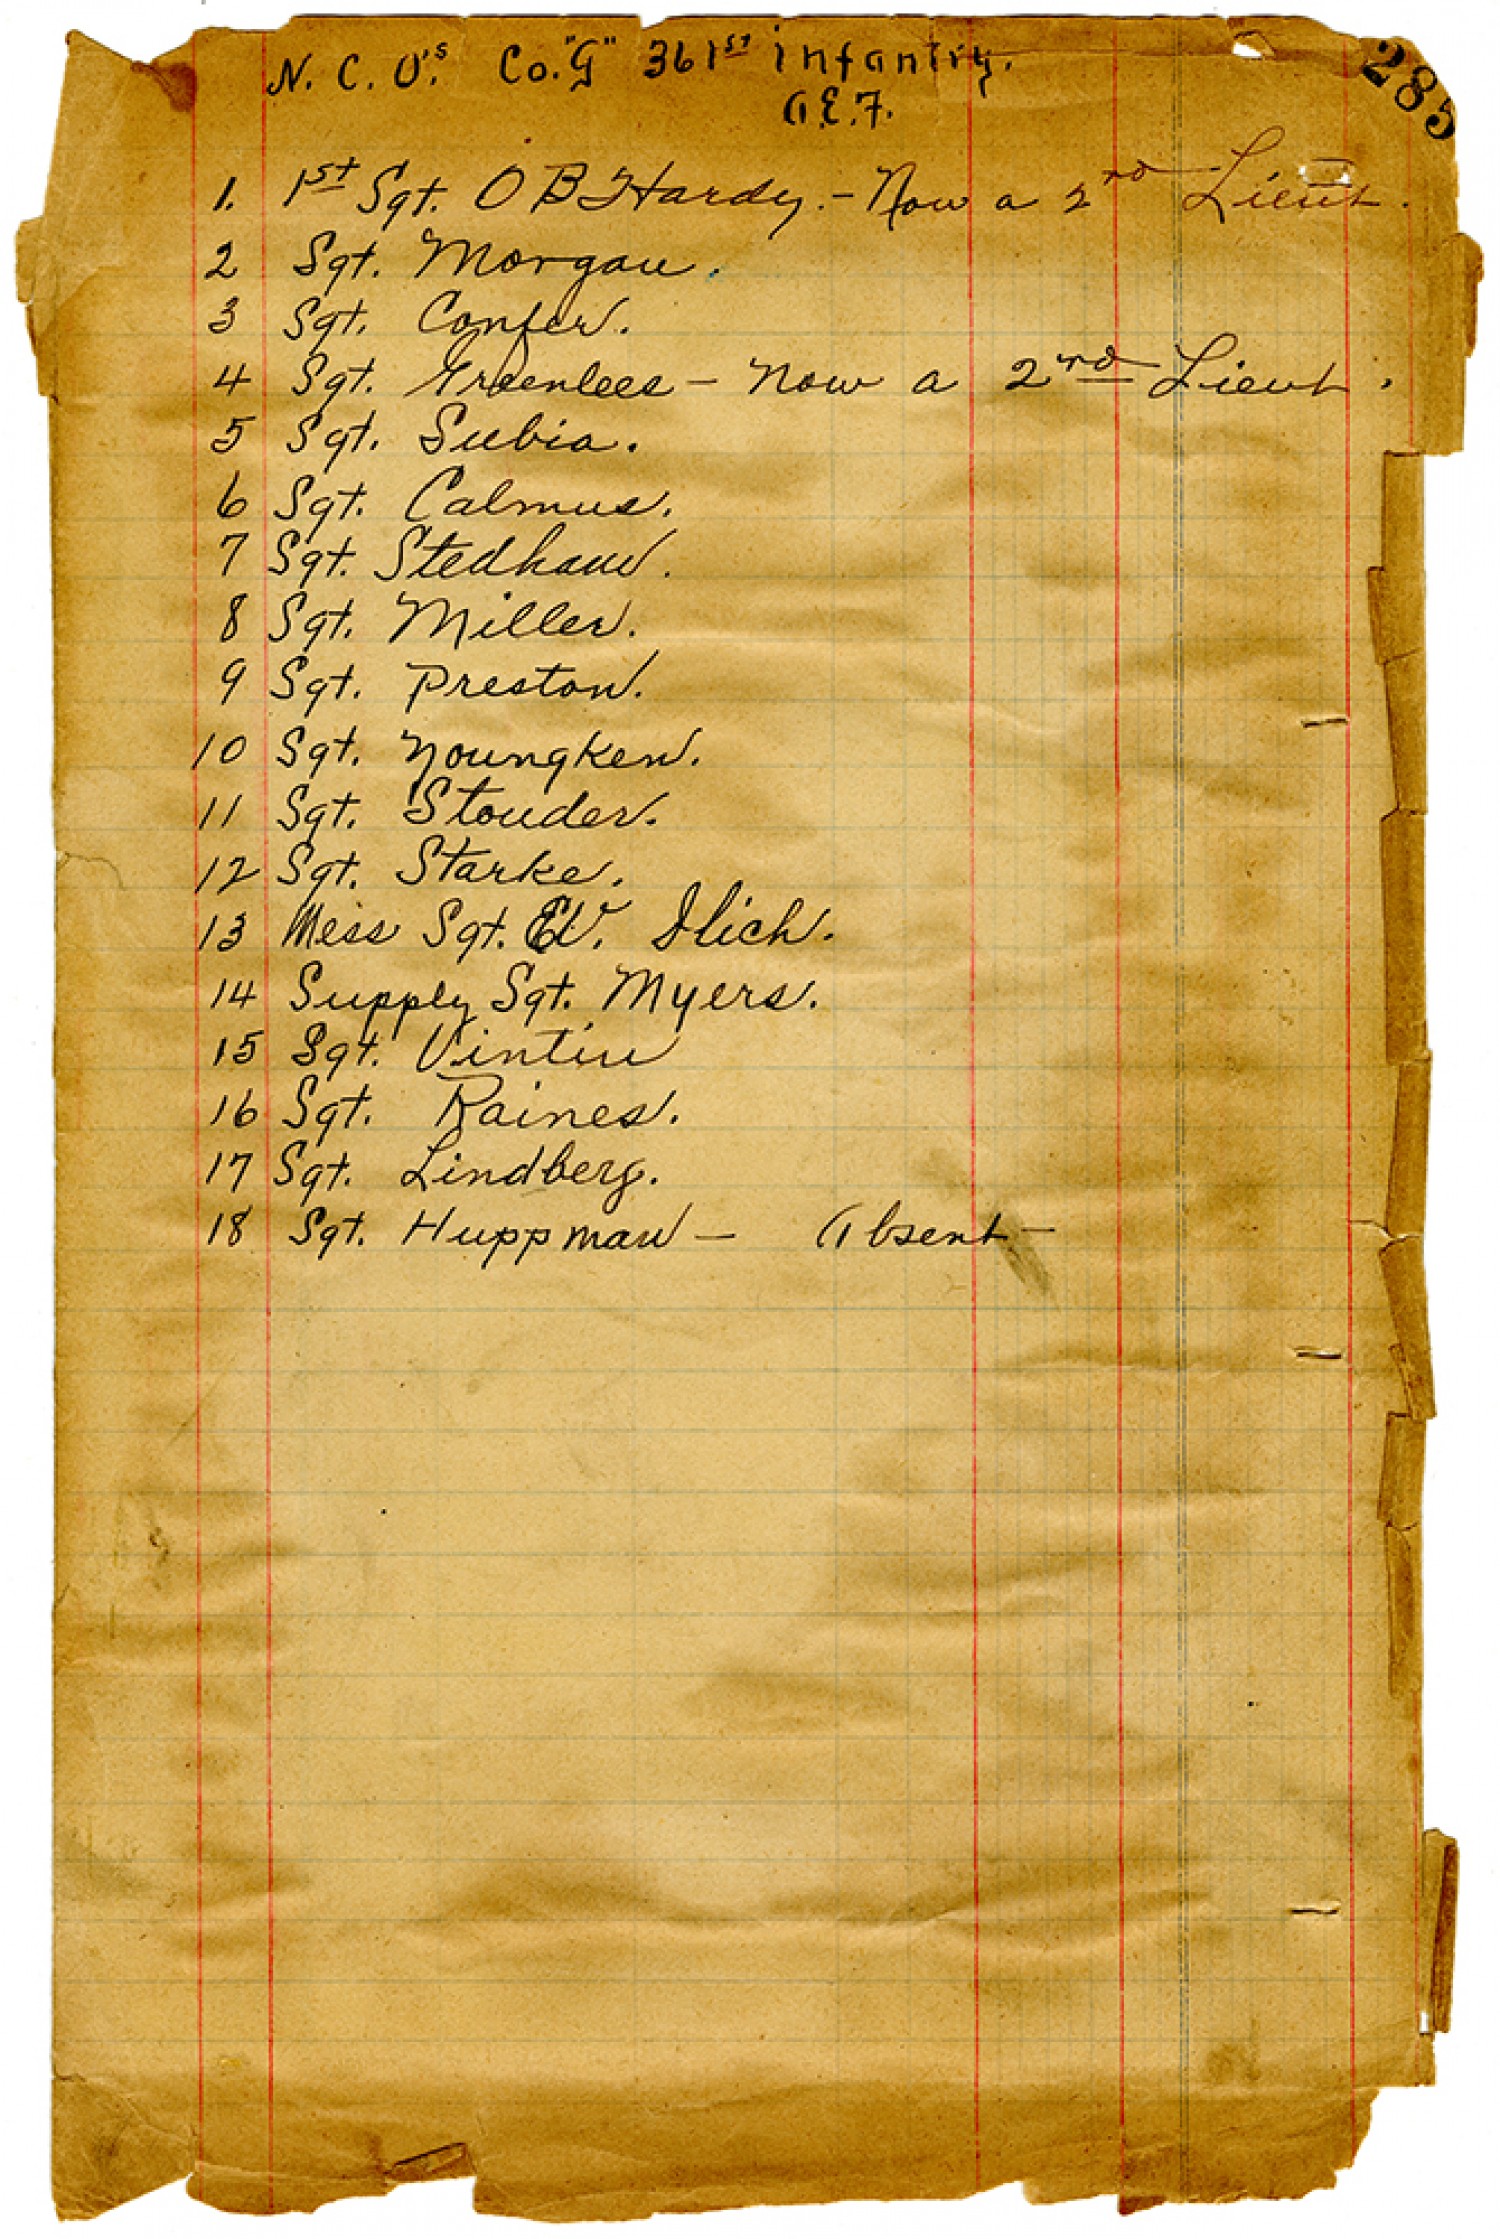 N. C. O's. Co. "G" 361st Infantry.
285
A.E.F.
1. 1st Sgt. O B Hardy. - Now a 2nd Lieut.
2 Sgt. Morgan.
3 Sgt. Confer.
4 Sgt. Greenlees - Now a 2nd Lieut.
5 Sgt. Subia.
6 Sgt. Calmus.
7 Sgt. Stedham.
8 Sgt. Miller.
9 Sgt. Preston.
10 Sgt. Youngken.
11 Sgt. Stouder.
12 Sgt. Starke.
13 Mess Sgt. Ilich.
14 Supply Sgt. Myers.
15 Sgt. Vintin
16 Sgt. Raines.
17 Sgt. Lindberg.
18 Sgt. Huppman - Absent -